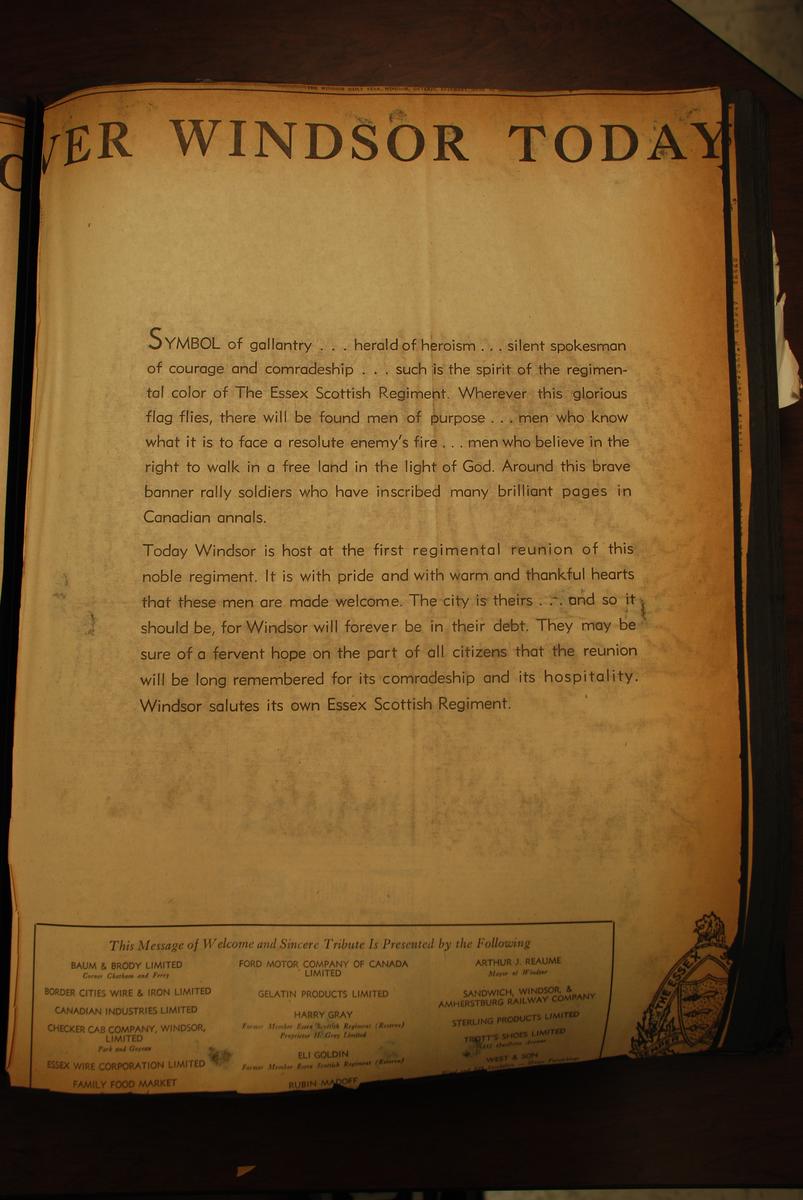 VER WINDSOR TODAY
SYMBOL of gallantry . . . herald of heroism . . . silent spokesman
of courage and comradeship . . . such is the spirit of the regimen-
tal color of The Essex Scottish Regiment. Wherever this glorious
flag flies, there will be found men of purpose . . . men who know
what it is to face a resolute enemy's fire . . . men who believe in the
right to walk in a free land in the light of God. Around this brave
banner rally soldiers who have inscribed many brilliant pages in
Canadian annals.
Today Windsor is host at the first regimental reunion of this
noble regiment. It is with pride and with warm and thankful hearts
that these men are made welcome. The city is theirs . . . and so it
should be, for Windsor will forever be in their debt. They may be
sure of a fervent hope on the part of all citizens that the reunion
will be long remembered for its comradeship and its hospitality.
Windsor salutes its own Essex Scottish Regiment.
This Message of Welcome and Sincere Tribute Is Presented by the Following
BAUM & BRODY LIMITED
Corner Chatham and Ferry
BORDER CITIES WIRE & IRON LIMITED
CANADIAN INDUSTRIES LIMITED
CHECKER CAB COMPANY, WINDSOR,
LIMITED
Park and Goyeau
ESSEX WIRE CORPORATION LIMITED
FAMILY FOOD MARKET
FORD MOTOR COMPANY OF CANADA
LIMITED
GELATIN PRODUCTS LIMITED
HARRY GRAY
Former Member Essex Scottish Regiment (Reserve)
Proprietor H. Gray Limited
ELI GOLDIN
Former Member Essex Scottish Regiment (Reserve)
RUBIN MADOFF
ARTHUR J. REAUME
Mayor of Windsor
SANDWICH, WINDSOR, &
AMHERSTBURG RAILWAY COMPANY
STERLING PRODUCTS LIMITED
TROTT'S SHOES LIMITED
Ouellette Avenue
WEST & SON
THE ESSEX